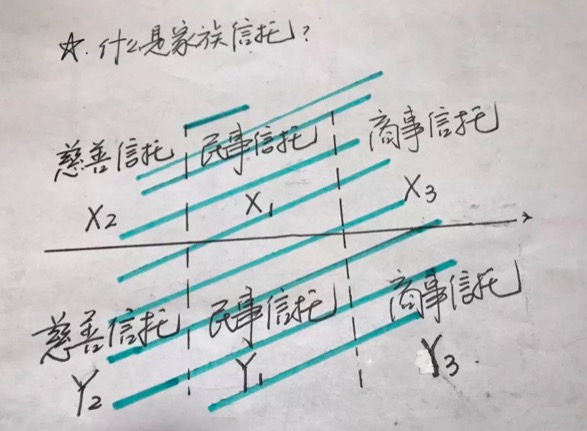 ☆. 什么是家族信托?
慈善信托 民事信托 商事信托
X2 X1 X3
慈善信托 民事信托 商事信托
Y2 Y1 Y3.